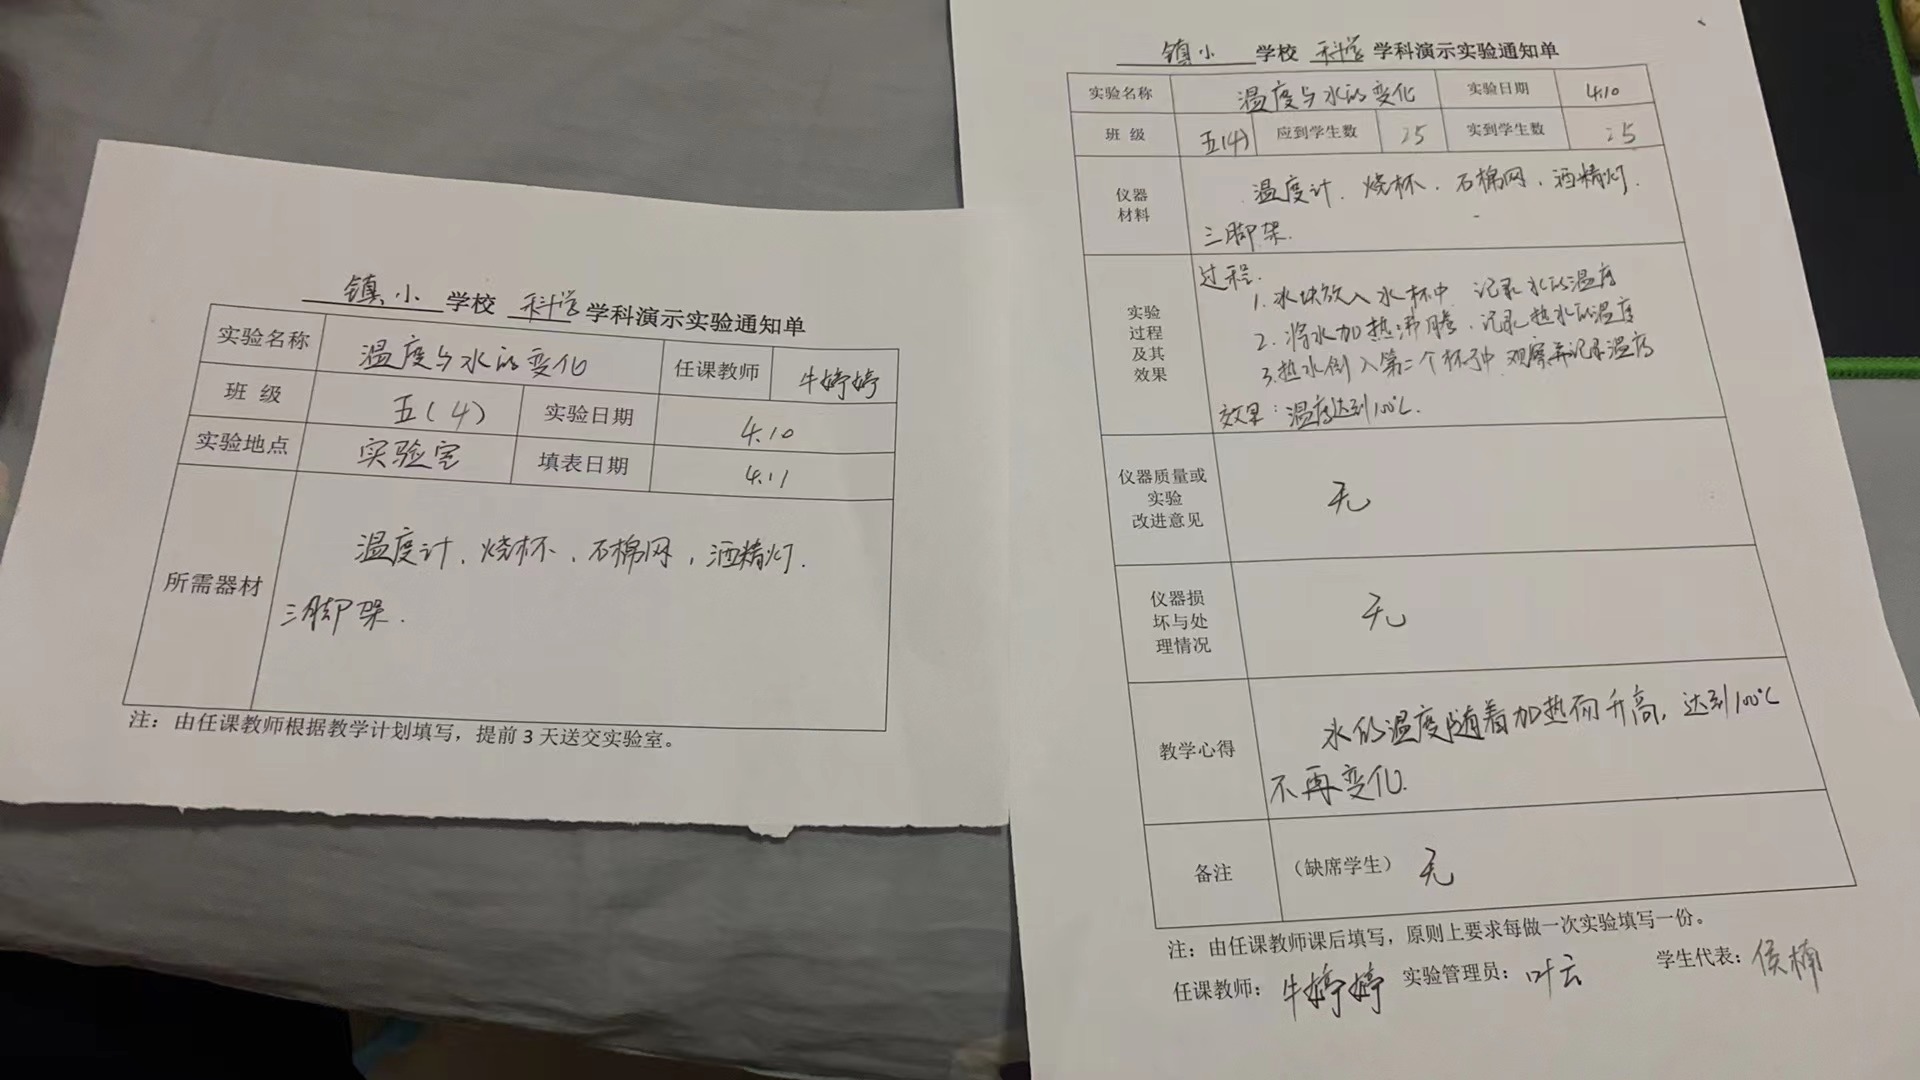 镇小 学校 科学 学科演示实验通知单
实验名称 温度与水的变化 任课教师 牛婷婷
班 级 五(4) 实验日期 4.10
实验地点 实验室 填表日期 4.11
所需器材 温度计、烧杯、石棉网,酒精灯.
三脚架.
注:由任课教师根据教学计划填写,提前3天送交实验室。
镇小 学校 科学 学科演示实验通知单
实验名称 温度与水的变化 实验日期 4.10
班 级 五(4) 应到学生数 25 实到学生数 25
仪器
材料
温度计、烧杯、石棉网,酒精灯.
三脚架.
实验
过程
及其
效果
过程:
1. 冰块放入水杯中 记录水的温度
2. 将水加热沸腾,记录热水的温度
3.热水倒入第二个杯中 观察并记录温度
效果:温度达到100℃.
仪器质量或
实验
改进意见
无
仪器损
坏与处
理情况
无
教学心得
水的温度随着加热而升高,达到100℃
不再变化.
备注 (缺席学生) 无
注:由任课教师课后填写,原则上要求每做一次实验填写一份。
任课教师:牛婷婷 实验管理员:叶云 学生代表:侯楠